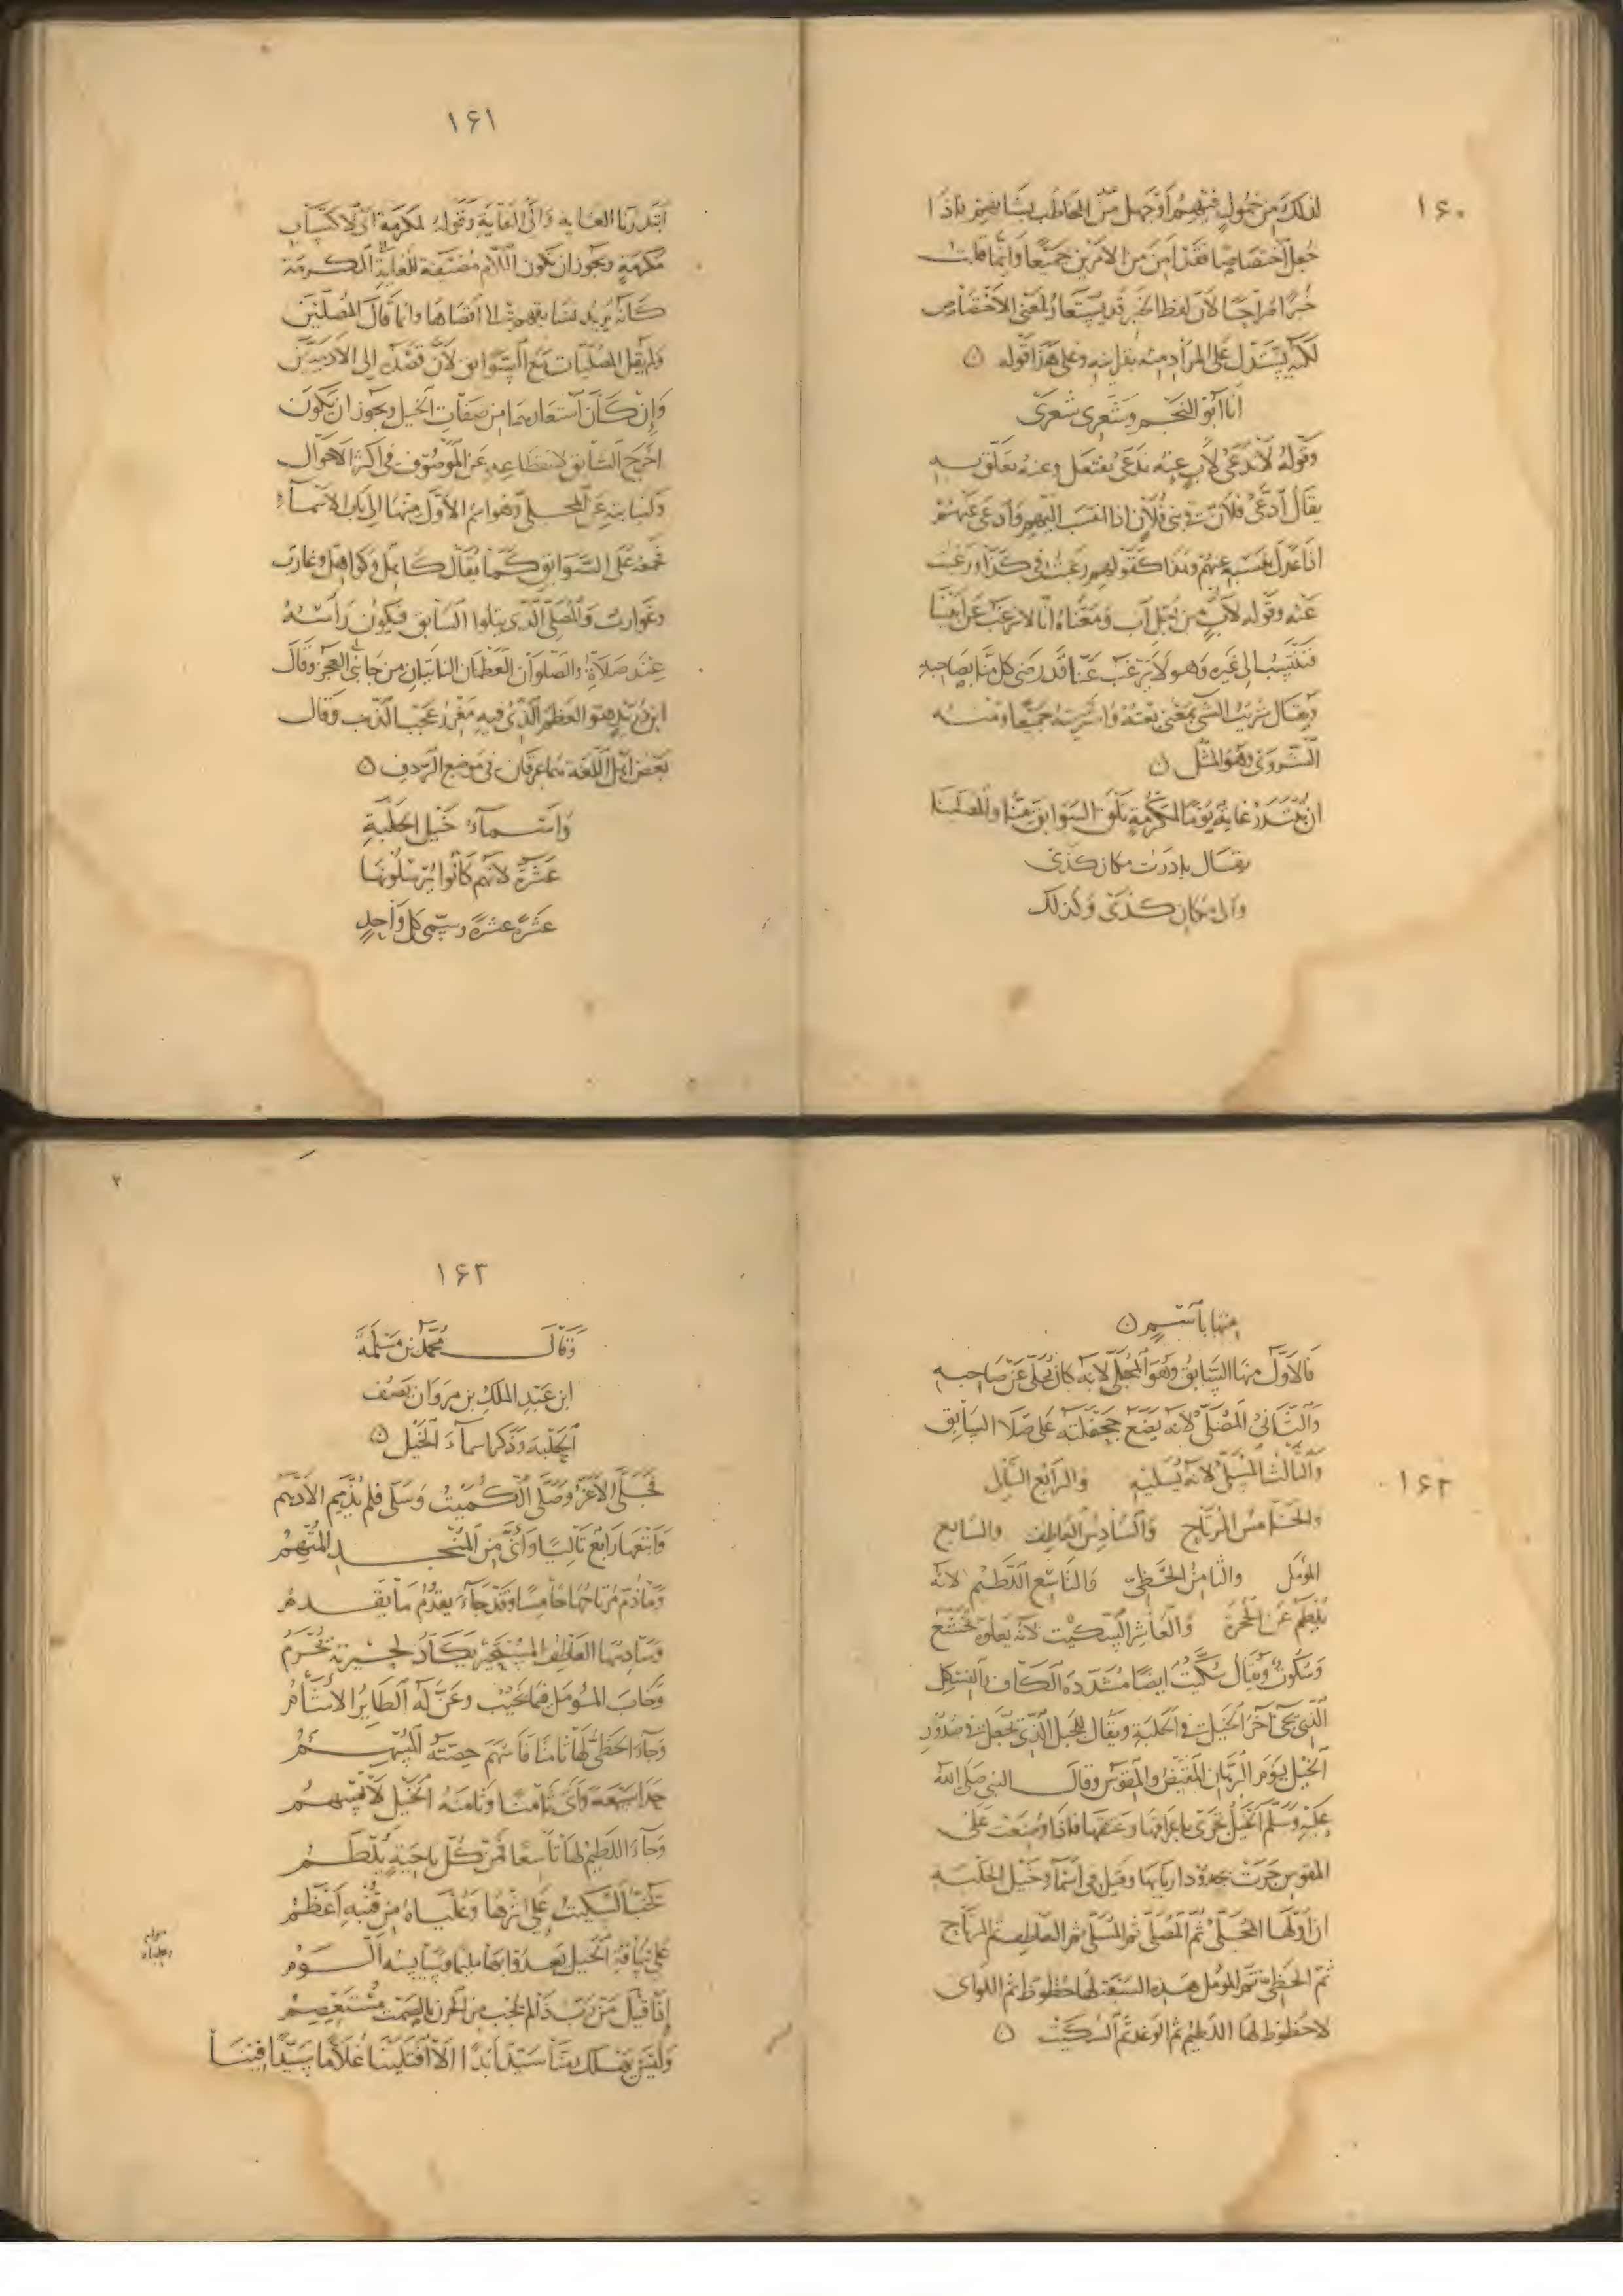 ١٦٠
لذلك من خمول فيهم أو جهل من المخاطب بشأنهم فاذا
جعل اختصاصا فقد امن من الامرين جميعا وانما قلت
خبرا صراحا لان لفظ الخبر قد يستعار لمعنى الاختصاص
لكنه يستدل على المراد منه بقرائنه وعلى هذا قوله
أنا أبو النجم وشعري شعري
وقوله لا ندعى لأب عنه ندعى نفتعل وعنه تعلق به
يقال ادعى فلان في بني فلان اذا انتسب اليهم وادعى عنهم
اذا عدل بنسبه عنهم وهذا كقولهم رغبت في كذا ورغبت
عنه وقوله لأب من أجل أب ومعناه انا لا نرغب عن أبينا
فننتسب الى غيره وهو لا يرغب عنا قد رضى كل منا بصاحبه
ويقال شريت الشي بمعنى بعته واشتريته جميعا ومنه
الشروى وهو المثل
ان تبتدر غاية يوما لمكرمة تلق السوابق منا والمصلينا
يقال بادرت مكان كذى
والى مكان كذى وكذلك
١٦١
ابتدرنا الغاية والى الغاية وقوله لمكرمة اى لاكتساب
مكرمة ويجوز ان يكون اللام مضيفة للغاية المكرمة
كانه يريد تسابقهم الى اقصاها وانما قال المصلين
ولم يقل المصليات مع السوابق لان قصده الى الآدميين
وإن كان استعارهما من صفات الخيل ويجوز ان يكون
اخرج السابق لانقطاعه عن الموصوف في اكثر الاحوال
ولنيابته عن المجلي وهو اسم الأول منها الى باب الاسماء
فجمعه على السوابق كما يقال كاهل وكواهل وغارب
وغوارب والمصلى الذي يتلوا السابق فيكون رأسه
عند صلاه والصلوان العظمان الناتيان من جانبي العجز وقال
ابن دريد هو العظم الذي فيه مغرز عجب الذنب وقال
بعض اهل اللغة هما عرقان في موضع الردف
واسماء خيل الحلبة
عشرة لانهم كانوا يرسلونها
عشرة عشرة وسمى كل واحد
١٦٢
منها باسم
فالاول منها السابق وهو المجلى لانه كان يجلى عن صاحبه
والثانى المصلى لانه يضع جحفلته على صلا السابق
والثالث المسلى لانه يسليه والرابع التالى
والخامس المرتاح والسادس العاطف والسابع
المؤمل والثامن الحظى والتاسع اللطيم لانه
يلطم عن الحجرة والعاشر السكيت لانه يعلوه تخشع
وسكوت ويقال سكيت ايضا مشددة الكاف والفسكل
الذى يجى آخر الخيل في الحلبة ويقال للحبل الذي تجعل في صدور
الخيل يوم الرهان المقبض والمقوس وقال النبي صلى الله
عليه وسلم الخيل تجرى باعراقها وعتقها فاذا وضعت على
المقوس جرت بجدود اربابها وقيل في اسماء خيل الحلبة
ان اولها المجلى ثم المصلى ثم المسلى ثم العاطف ثم المرتاح
ثم الحظى ثم المومل هذه السبعة لها حظوظ ثم اللواتى
لا حظوظ لها اللطيم ثم الوغد ثم السكيت
١٦٣
وقال محمد بن مسلمة
ابن عبد الملك بن مروان يصف
الحلبة وذكر اسماء الخيل
فجلى الأغر وصلى الكميت وسلى فلم يذمم الأدهم
وأتبعها رابع تاليا وأنى من المنجد المتهم
وما ذم مرتاحها خامسا وقد جاء يقدم ما يقدم
وسادسها العاطف المستحير يكاد لحيرته يحرم
وخاب المؤمل فيما يخيب وعن له الطاير الأشأم
وجاء الحظى لها ثامنا فأسهم حصته المسهم
حدا سبعة وأتى ثامنا وثامنة الخيل لا تسهم
وجاء اللطيم لها تاسعا فمن كل ناحية يلطم
يخب السكيت على اثرها وعلياه من قنبه أعظم
على ساقة الخيل يعدو بها مليما وسايسه ألوم
إذا قيل من رب ذا لم يجب من الحزن بالصمت مستعصم
وليس يهلك منا سيد أبدا إلا افتلينا غلاما سيدا فينا